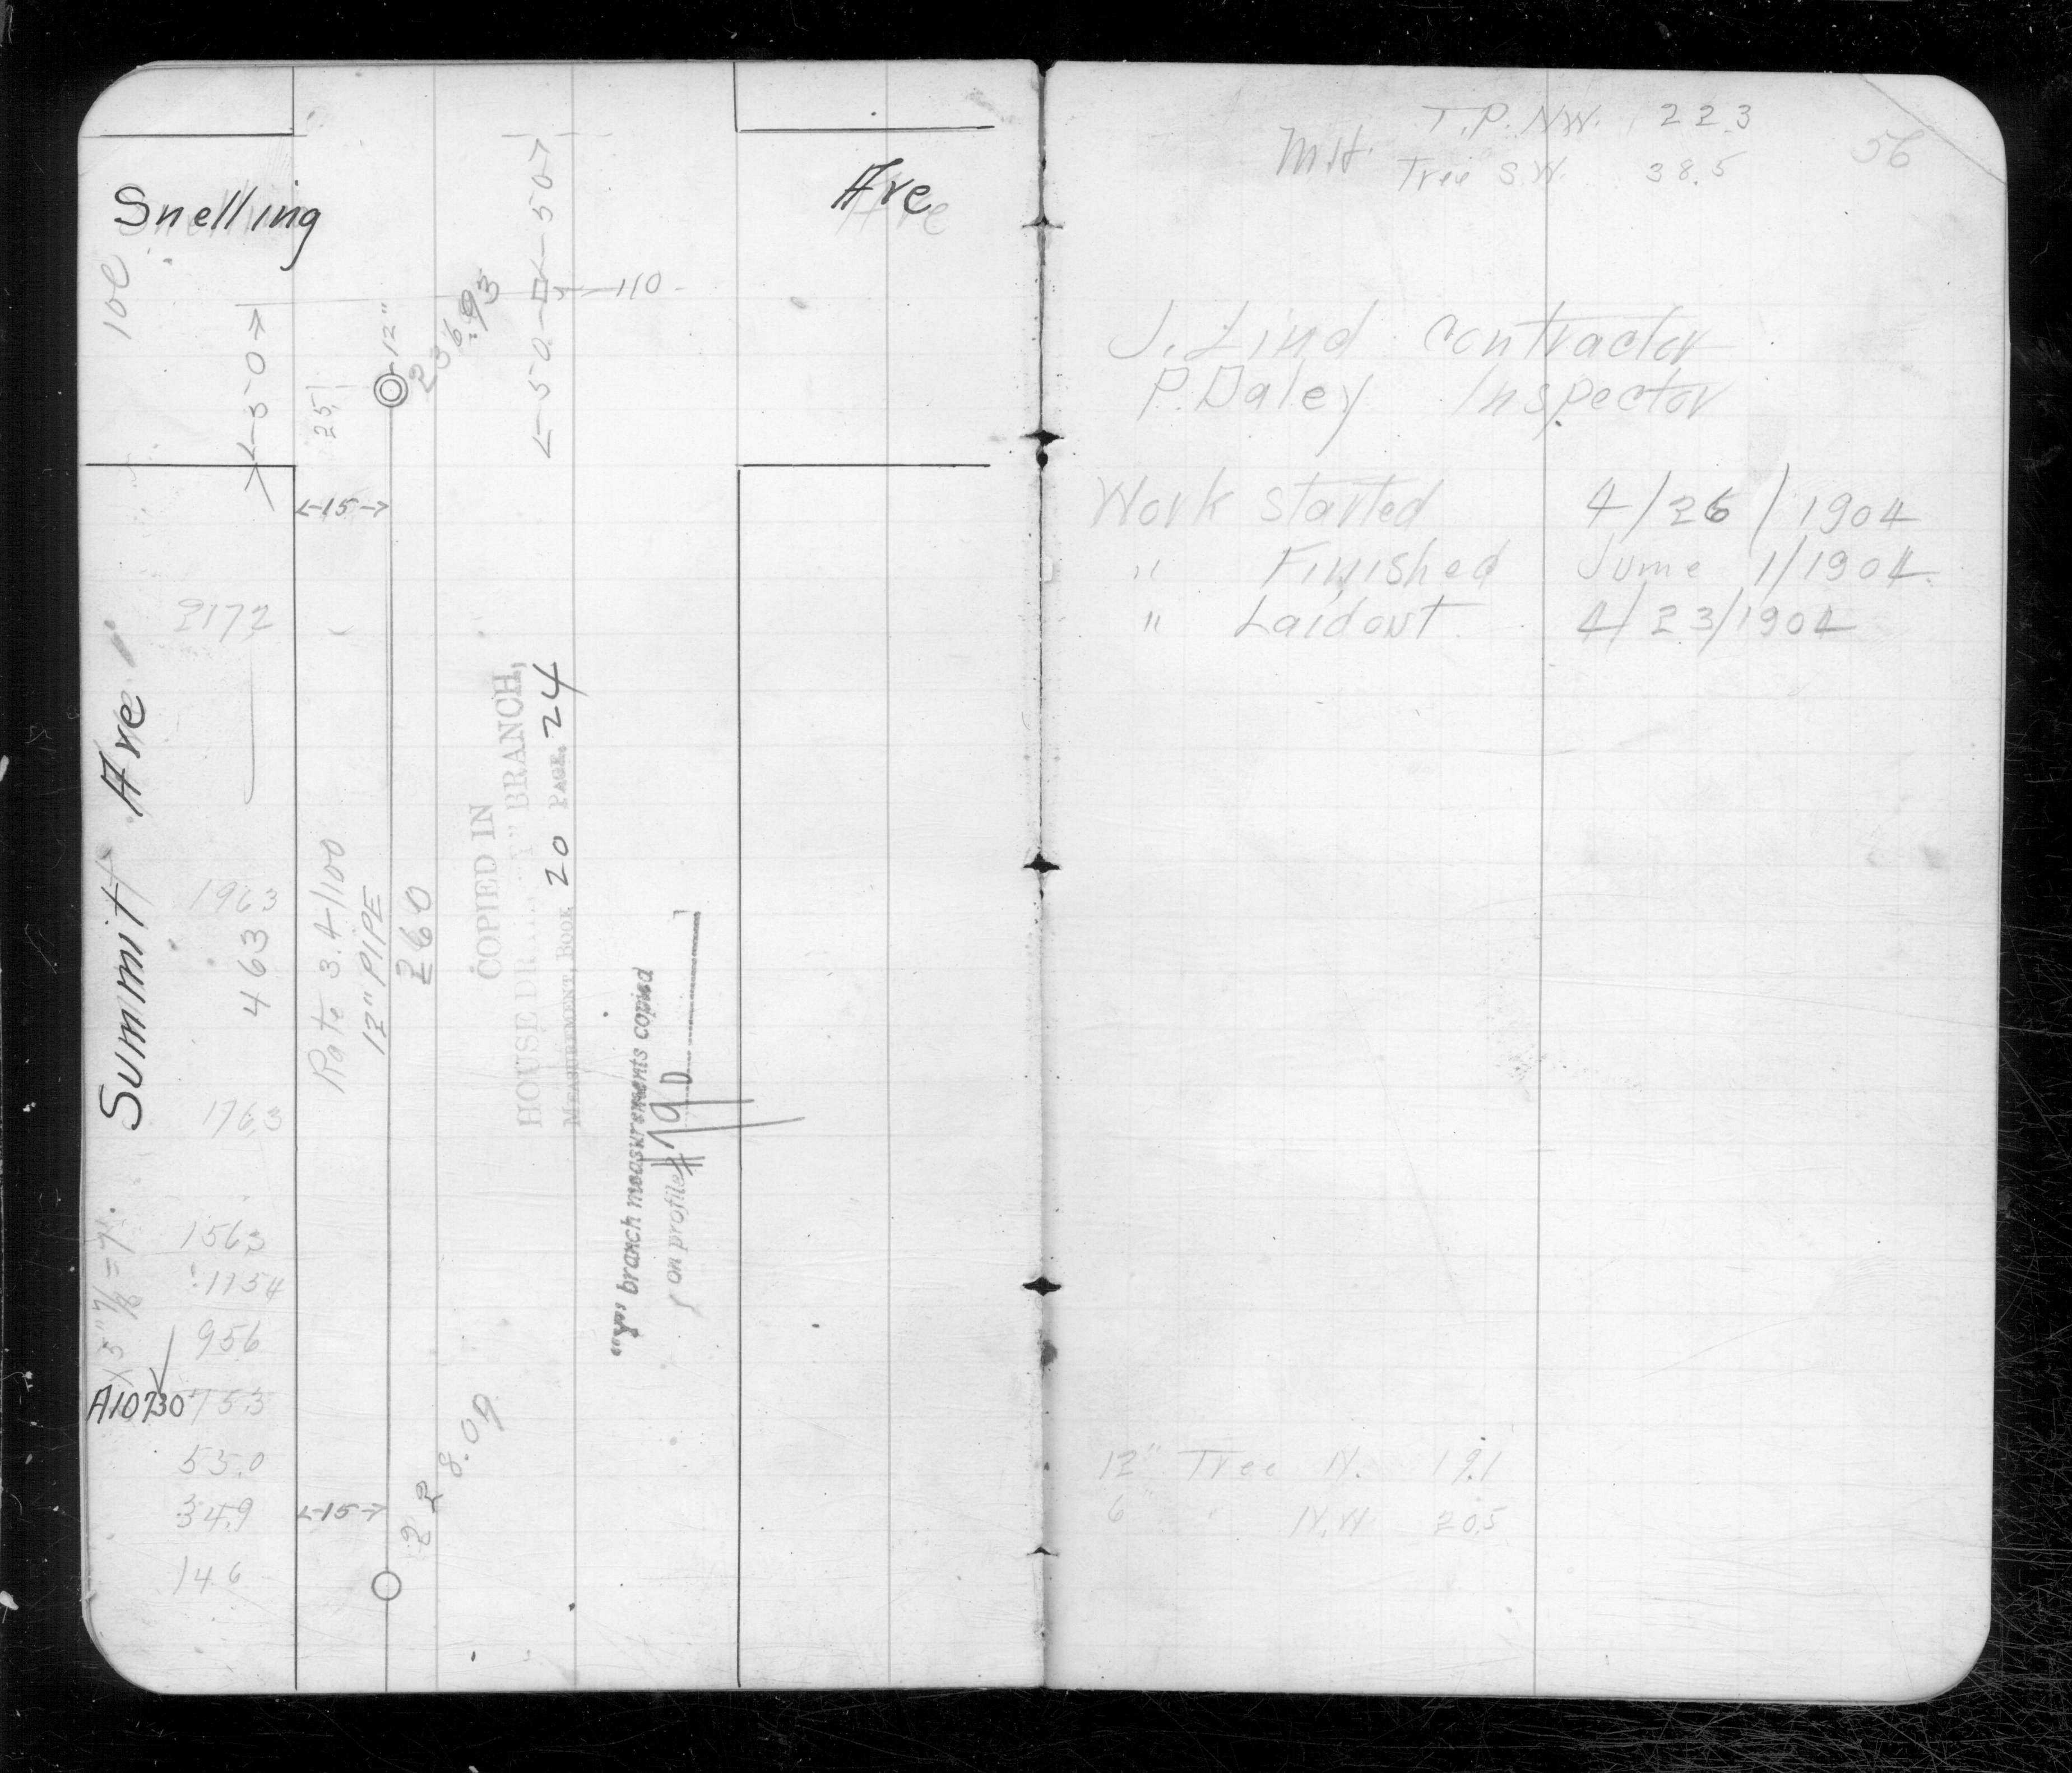 Snelling Ave
10e
←50→
25
12"
236.93
←50→
←50→
110
←15→
Summit Ave
2172
1963
463
1763
1563
1154
956
753
A10730
53.0
34.9
14.6
Rate 3.4/100
12" PIPE
260
COPIED IN
HOUSE DR..... "Y" BRANCH,
MEASUREMENT, BOOK 20 PAGE 24
"Y" branch measurements copied
on profile #19D
228.09
←15→
T.P. N.W. 22.3
M.H. Tree S.W. 38.5
56
J. Lind contractor
P. Daley Inspector
Work started 4/26/1904
" Finished June 1/1904
" Laid out 4/23/1904
12" Tree N. 19.1
6" " N.W. 20.5